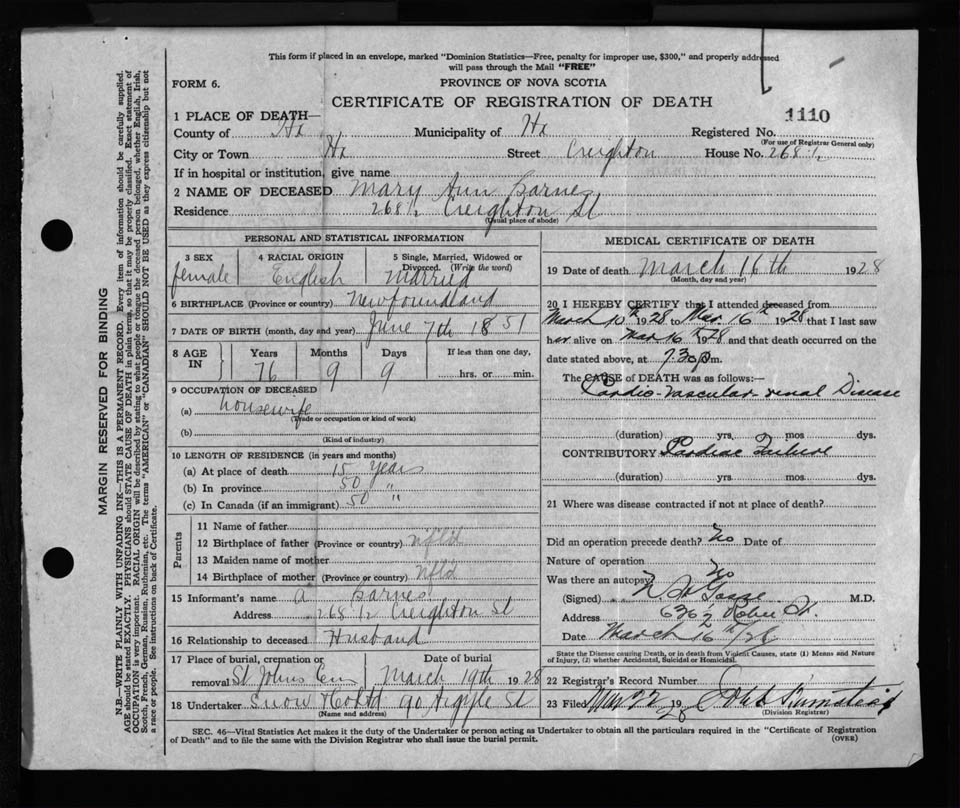 This form if placed in an envelope, marked "Dominion Statistics—Free, penalty for improper use, $300," and properly addressed
will pass through the Mail "FREE"
FORM 6.
PROVINCE OF NOVA SCOTIA
CERTIFICATE OF REGISTRATION OF DEATH
1 PLACE OF DEATH—
1110
County of Hx Municipality of Hx Registered No.
(For use of Registrar General only)
City or Town Hx Street Creighton House No. 268 1/2
If in hospital or institution, give name
2 NAME OF DECEASED Mary Ann Barnes
Residence 268 1/2 Creighton St
(Usual place of abode)
PERSONAL AND STATISTICAL INFORMATION
3 SEX 4 RACIAL ORIGIN 5 Single, Married, Widowed or
Divorced. (Write the word)
female English Married
6 BIRTHPLACE (Province or country) Newfoundland
7 DATE OF BIRTH (month, day and year) June 7th 1851
8 AGE IN Years Months Days If less than one day,
76 9 9 hrs. or min.
9 OCCUPATION OF DECEASED
(a) housewife
(Trade or occupation or kind of work)
(b)
(Kind of industry)
10 LENGTH OF RESIDENCE (in years and months)
(a) At place of death 15 Years
(b) In province 50 "
(c) In Canada (if an immigrant) 50 "
Parents
11 Name of father
12 Birthplace of father (Province or country) nfld
13 Maiden name of mother
14 Birthplace of mother (Province or country) Nfld
15 Informant's name A Barnes
Address 268 1/2 Creighton St
16 Relationship to deceased Husband
17 Place of burial, cremation or Date of burial
removal St Johns Cem March 19th 1928
18 Undertaker Snow & Co Ltd 90 Argyle St
(Name and address)
MEDICAL CERTIFICATE OF DEATH
19 Date of death March 16th 1928
(Month, day and year)
20 I HEREBY CERTIFY that I attended deceased from
March 10th 1928 to Mar. 16th 1928 that I last saw
her alive on Mar 16th 1928 and that death occurred on the
date stated above, at 7.30 p.m.
The CAUSE of DEATH was as follows:—
Cardio-vascular-renal Disease
(duration) yrs. mos dys.
CONTRIBUTORY Cardiac Failure
(duration) yrs mos dys.
21 Where was disease contracted if not at place of death?
Did an operation precede death? No Date of
Nature of operation
Was there an autopsy? No
(Signed) M.D.
Address
Date March 16th/28
State the Disease causing Death, or in death from Violent Causes, state (1) Means and Nature
of Injury, (2) whether Accidental, Suicidal or Homicidal.
22 Registrar's Record Number
23 Filed Mar 22 1928
(Division Registrar)
SEC. 46—Vital Statistics Act makes it the duty of the Undertaker or person acting as Undertaker to obtain all the particulars required in the "Certificate of Registration
of Death" and to file the same with the Division Registrar who shall issue the burial permit.
(OVER)
MARGIN RESERVED FOR BINDING
N.B.—WRITE PLAINLY WITH UNFADING INK—THIS IS A PERMANENT RECORD. Every item of information should be carefully supplied.
AGE should be stated EXACTLY. PHYSICIANS should STATE CAUSE OF DEATH in plain terms, so that it may be properly classified. Exact statement of
OCCUPATION is very important. RACIAL ORIGIN will be described by stating to what people or tongue the deceased person belonged, whether English, Irish,
Scotch, French, German, Russian, Ruthenian, etc. The terms "AMERICAN" or "CANADIAN" SHOULD NOT BE USED as they express citizenship but not
a race or people. See instructions on back of Certificate.